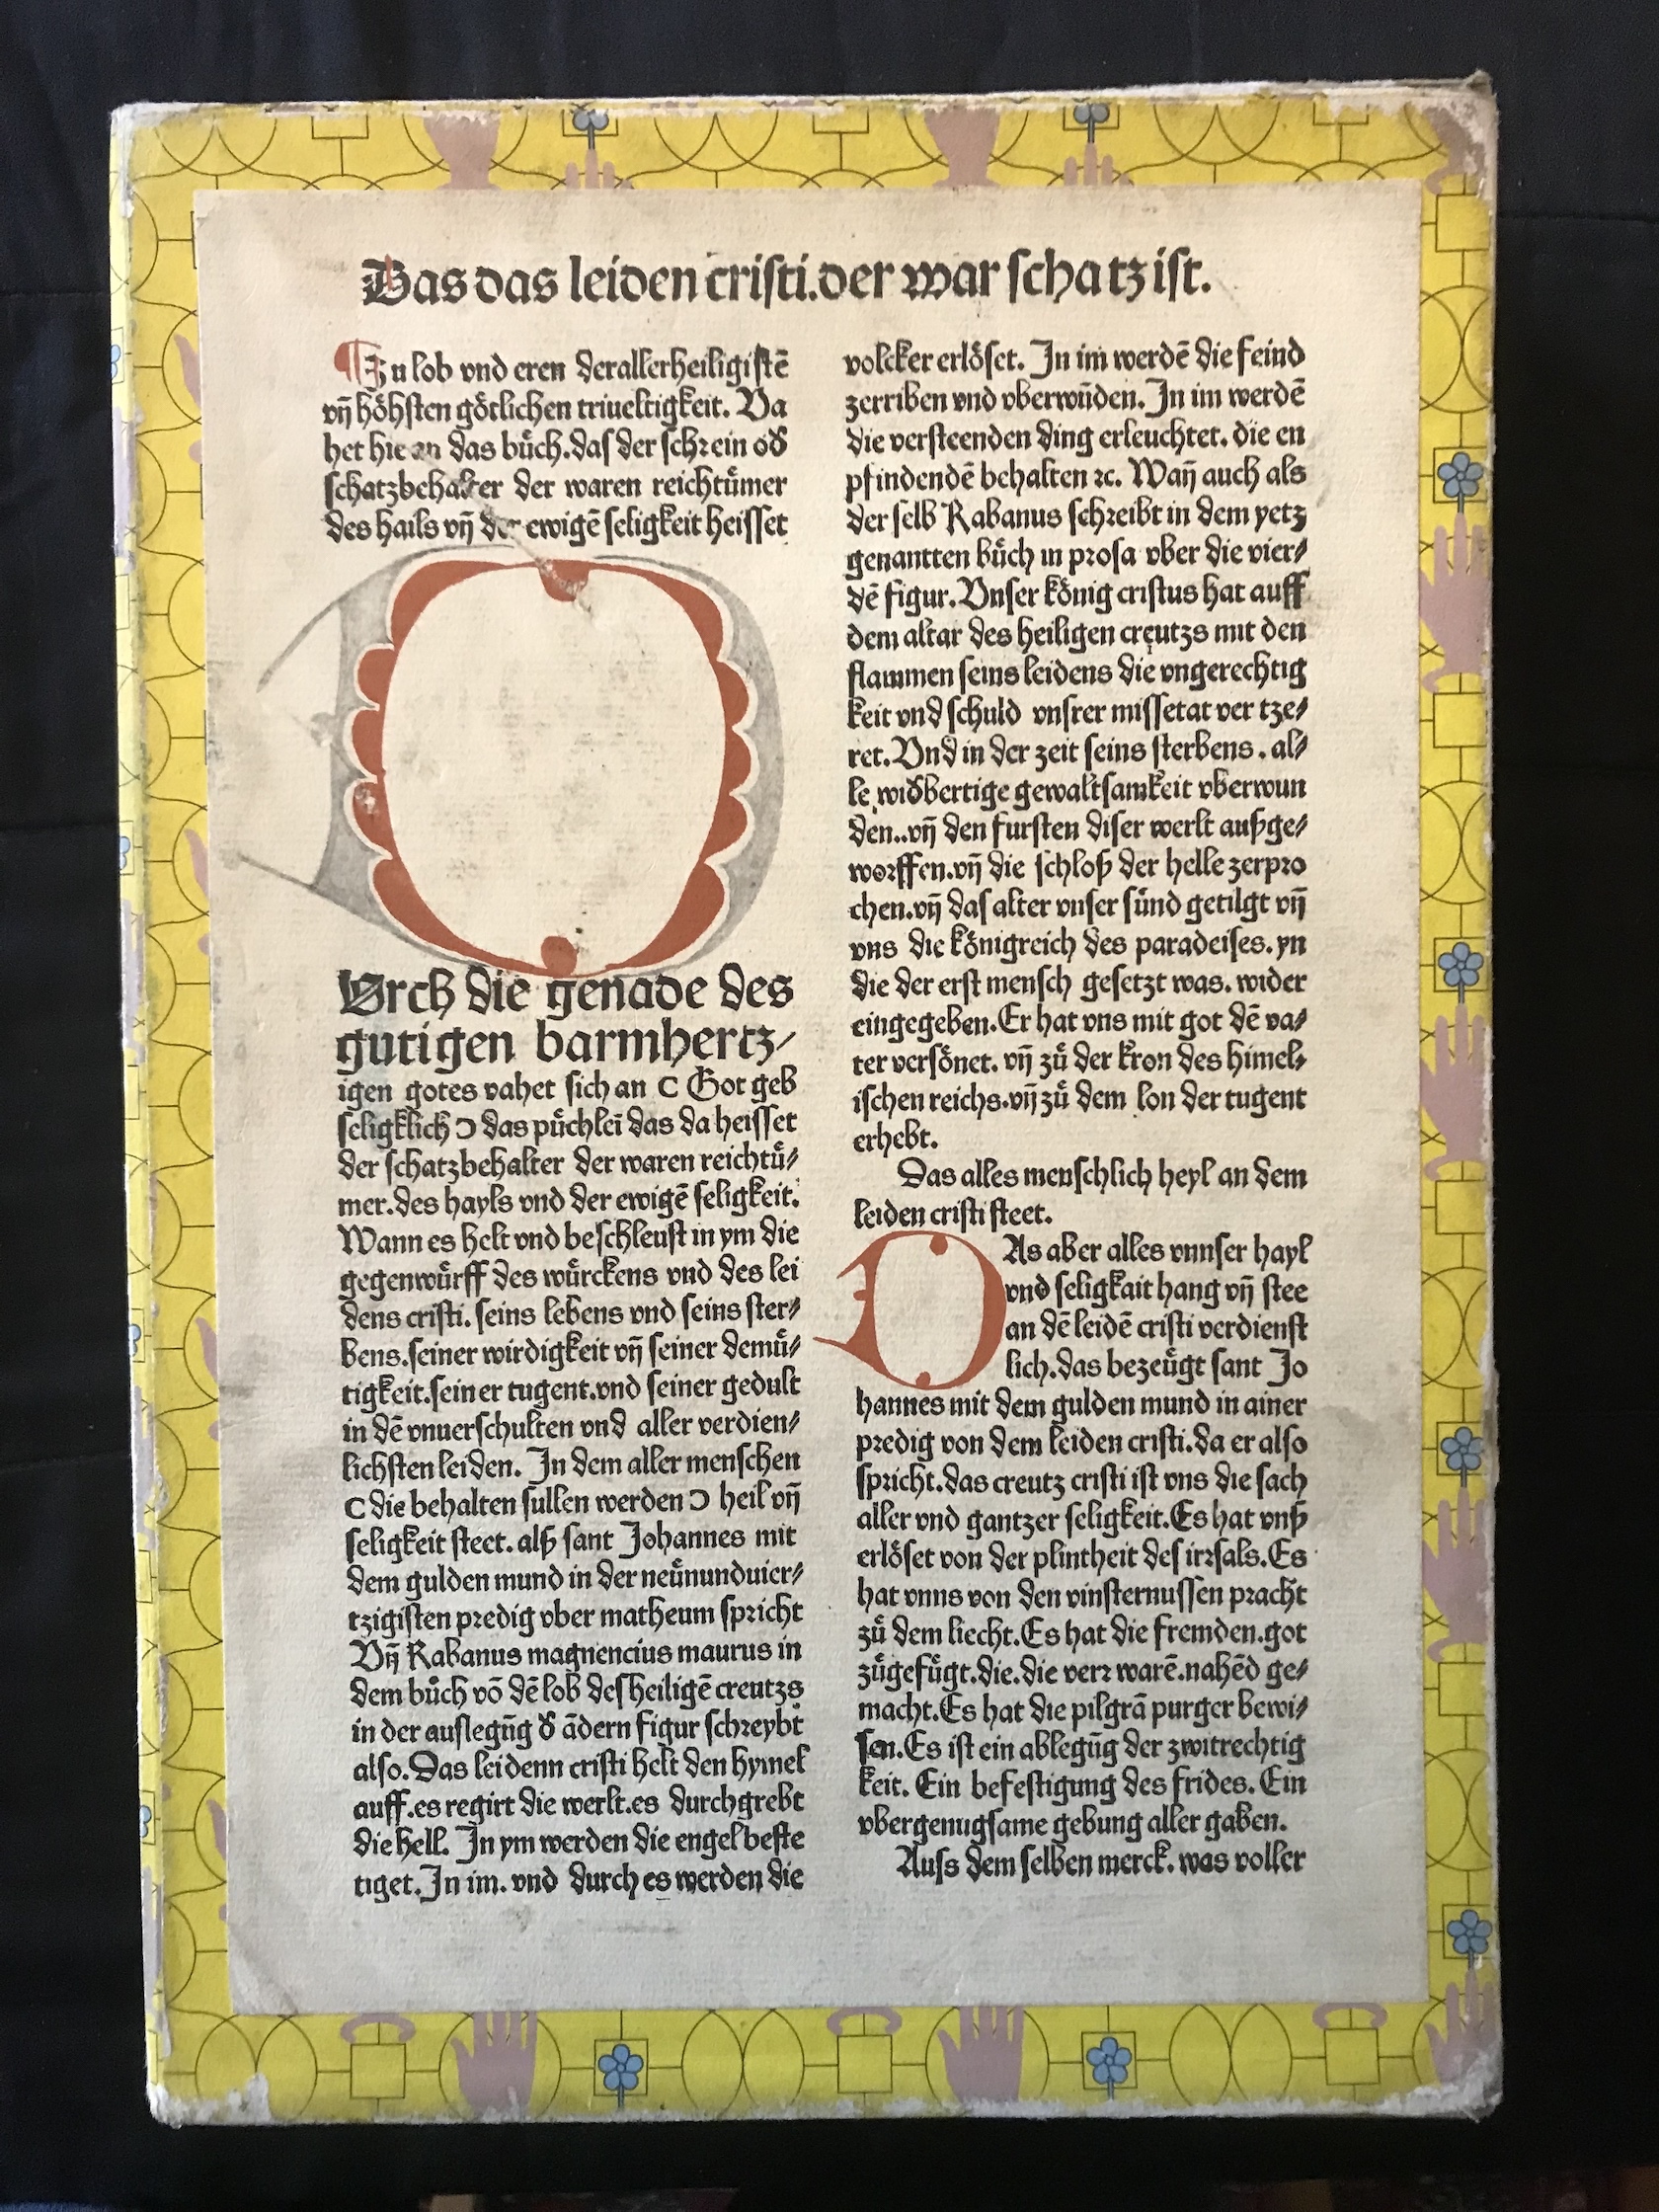 Das das leiden cristi.der war schatz ist.
Zu lob vnd eren derallerheiligistē
vn̄ höhsten götlichen triueltigkeit. Va
het hie an das bůch.das der schrein oď
schatzbehalter der waren reichtümer
des hails vn̄ der ewigē seligkeit heisset
DVrch die genade des
gutigen barmhertz⸗
igen gotes vahet sich an C Got geb
seligklich Ɔ das půchlei das da heisset
der schatzbehalter der waren reichtü⸗
mer.des hayls vnd der ewigē seligkeit.
Wann es helt vnd beschleust in ym die
gegenwürff des würckens vnd des lei
dens cristi. seins lebens vnd seins ster⸗
bens.seiner wirdigkeit vn̄ seiner demü⸗
tigkeit.seiner tugent.vnd seiner gedult
in dē vnuerschulten vnd aller verdien⸗
lichsten leiden. In dem aller menschen
C die behalten sullen werden Ɔ heil vn̄
seligkeit steet. alß sant Johannes mit
dem gulden mund in der neünunduier⸗
tzigisten predig vber matheum spricht
Vn̄ Rabanus magnencius maurus in
dem bůch vō dē lob des heiligē creutzs
in der auslegūg ď ādern figur schreybt
also.Das leidenn cristi helt den hymel
auff.es regirt die werlt.es durchgrebt
die hell. In ym werden die engel beste
tiget.In im. vnd durch es werden die
volcker erlöset. In im werdē die feind
zerriben vnd vberwūden. In im werdē
die versteenden ding erleuchtet. die en
pfindendē behalten ꝛc. Wan̄ auch als
der selb Rabanus schreibt in dem yetz
genantten bůch in prosa vber die vier⸗
dē figur.Vnser könig cristus hat auff
dem altar des heiligen creutzs mit den
flammen seins leidens die vngerechtig
keit vnd schuld vnsrer missetat ver tze⸗
ret.Vnd in der zeit seins sterbens . al⸗
le widbertige gewaltsamkeit vberwun
den..vn̄ den fursten diser werlt außge⸗
worffen.vn̄ die schloß der helle zerpro
chen.vn̄ das alter vnser sünd getilgt vn̄
vns die königreich des paradeises. yn
die der erst mensch gesetzt was. wider
eingegeben.Er hat vns mit got dē va⸗
ter versönet. vn̄ zů der kron des himel⸗
ischen reichs.vn̄ zů dem lon der tugent
erhebt.
Das alles menschlich heyl an dem
leiden cristi steet.
DAs aber alles vnnser hayl
vnd seligkait hang vn̄ stee
an dē leidē cristi verdienst
lich.das bezeügt sant Jo
hannes mit dem gulden mund in ainer
predig von dem leiden cristi.da er also
spricht.das creutz cristi ist vns die sach
aller vnd gantzer seligkeit.Es hat vnß
erlöset von der plintheit des irrsals.Es
hat vnns von den vinsternussen pracht
zů dem liecht.Es hat die fremden.got
zůgefügt.die.die verr warē.nahēd ge⸗
macht.Es hat die pilgrā purger bewi⸗
sen.Es ist ein ablegūg der zwitrechtig
keit. Ein befestigung des frides. Ein
vbergenugsame gebung aller gaben.
Auss dem selben merck. was voller